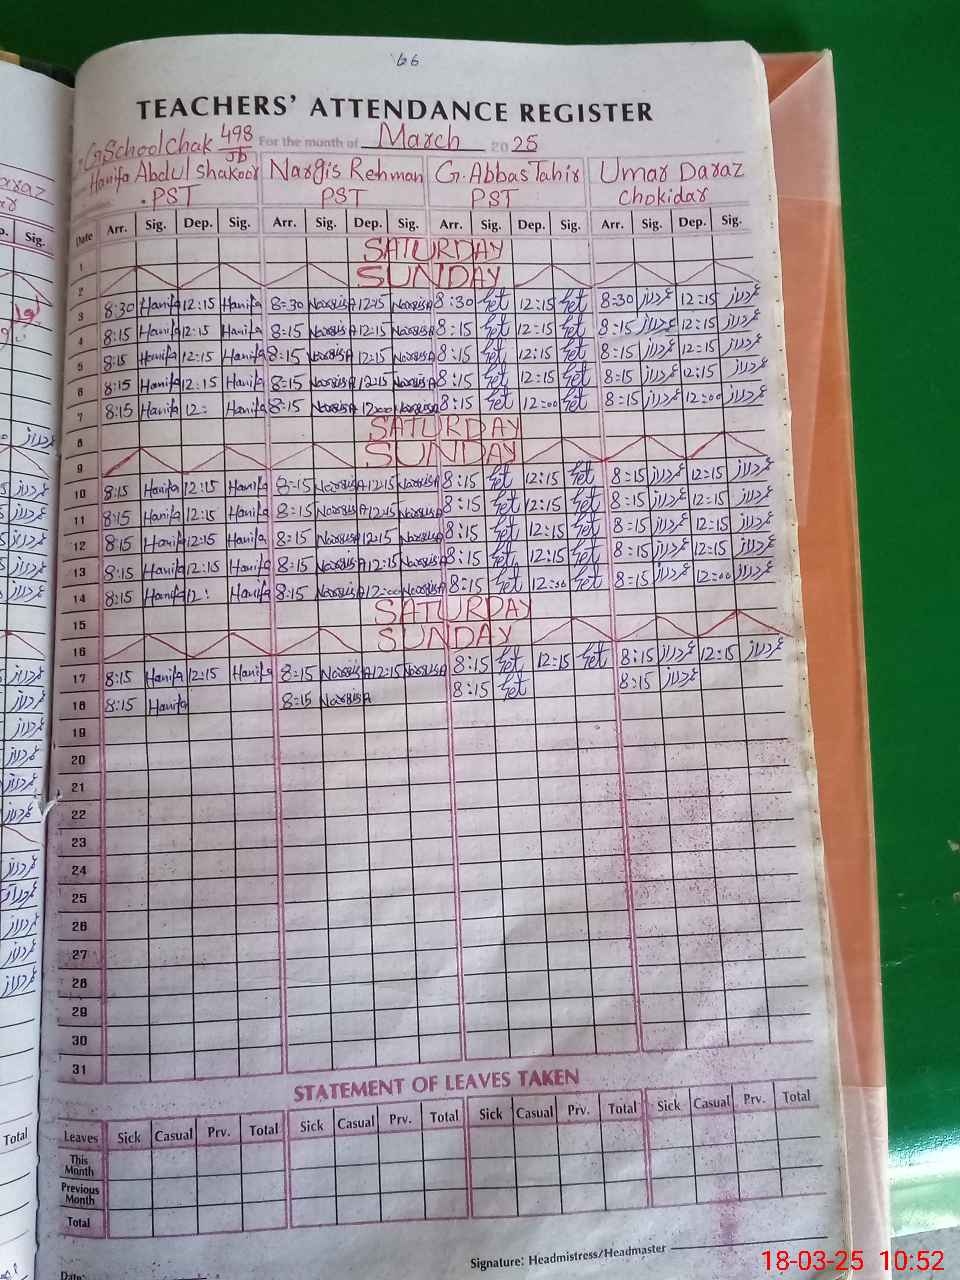 66
TEACHERS' ATTENDANCE REGISTER
G. School Chak 498/Jb For the month of March 2025
Hanifa Abdul Shakoor Nargis Rehman G. Abbas Tahir Umar Daraz
PST PST PST Chokidar
Date Arr. Sig. Dep. Sig. Arr. Sig. Dep. Sig. Arr. Sig. Dep. Sig. Arr. Sig. Dep. Sig.
1 SATURDAY
2 SUNDAY
3 8:30 Hanifa 12:15 Hanifa 8=30 Nargis A 12:15 Nargis A 8:30 12:15 8=30 عمردراز 12:15 عمردراز
4 8:15 Hanifa 12:15 Hanifa 8:15 Nargis A 12:15 Nargis A 8:15 12:15 8=15 عمردراز 12:15 عمردراز
5 8:15 Hanifa 12:15 Hanifa 8:15 Nargis A 12:15 Nargis A 8:15 12:15 8=15 عمردراز 12:15 عمردراز
6 8:15 Hanifa 12:15 Hanifa 8=15 Nargis A 12:15 Nargis A 8:15 12:15 8=15 عمردراز 12:15 عمردراز
7 8:15 Hanifa 12: Hanifa 8=15 Nargis A 12:00 Nargis A 8:15 12:00 8=15 عمردراز 12:00 عمردراز
8 SATURDAY
9 SUNDAY
10 8:15 Hanifa 12:15 Hanifa 8=15 Nargis A 12:15 Nargis A 8:15 12:15 8=15 عمردراز 12:15 عمردراز
11 8:15 Hanifa 12:15 Hanifa 8:15 Nargis A 12:15 Nargis A 8:15 12:15 8=15 عمردراز 12:15 عمردراز
12 8:15 Hanifa 12:15 Hanifa 8=15 Nargis A 12:15 Nargis A 8:15 12:15 8=15 عمردراز 12:15 عمردراز
13 8:15 Hanifa 12:15 Hanifa 8=15 Nargis A 12:15 Nargis A 8:15 12:15 8=15 عمردراز 12:15 عمردراز
14 8:15 Hanifa 12: Hanifa 8=15 Nargis A 12:00 Nargis A 8:15 12:00 8=15 عمردراز 12:00 عمردراز
15 SATURDAY
16 SUNDAY
17 8:15 Hanifa 12:15 Hanifa 8:15 Nargis A 12:15 Nargis A 8:15 12:15 8:15 عمردراز 12:15 عمردراز
18 8:15 Hanifa 8:15 Nargis A 8:15 8:15 عمردراز
19
20
21
22
23
24
25
26
27
28
29
30
31
STATEMENT OF LEAVES TAKEN
Leaves Sick Casual Prv. Total Sick Casual Prv. Total Sick Casual Prv. Total Sick Casual Prv. Total
This Month
Previous Month
Total
Signature: Headmistress/Headmaster
Date:
18-03-25 10:52